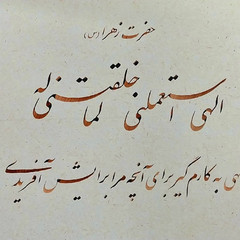 حضرت زهرا (س)
الهی استعملنی لما خلقتنی له
هی به کارم گیر برای آنچه مرا برایش آفریدی